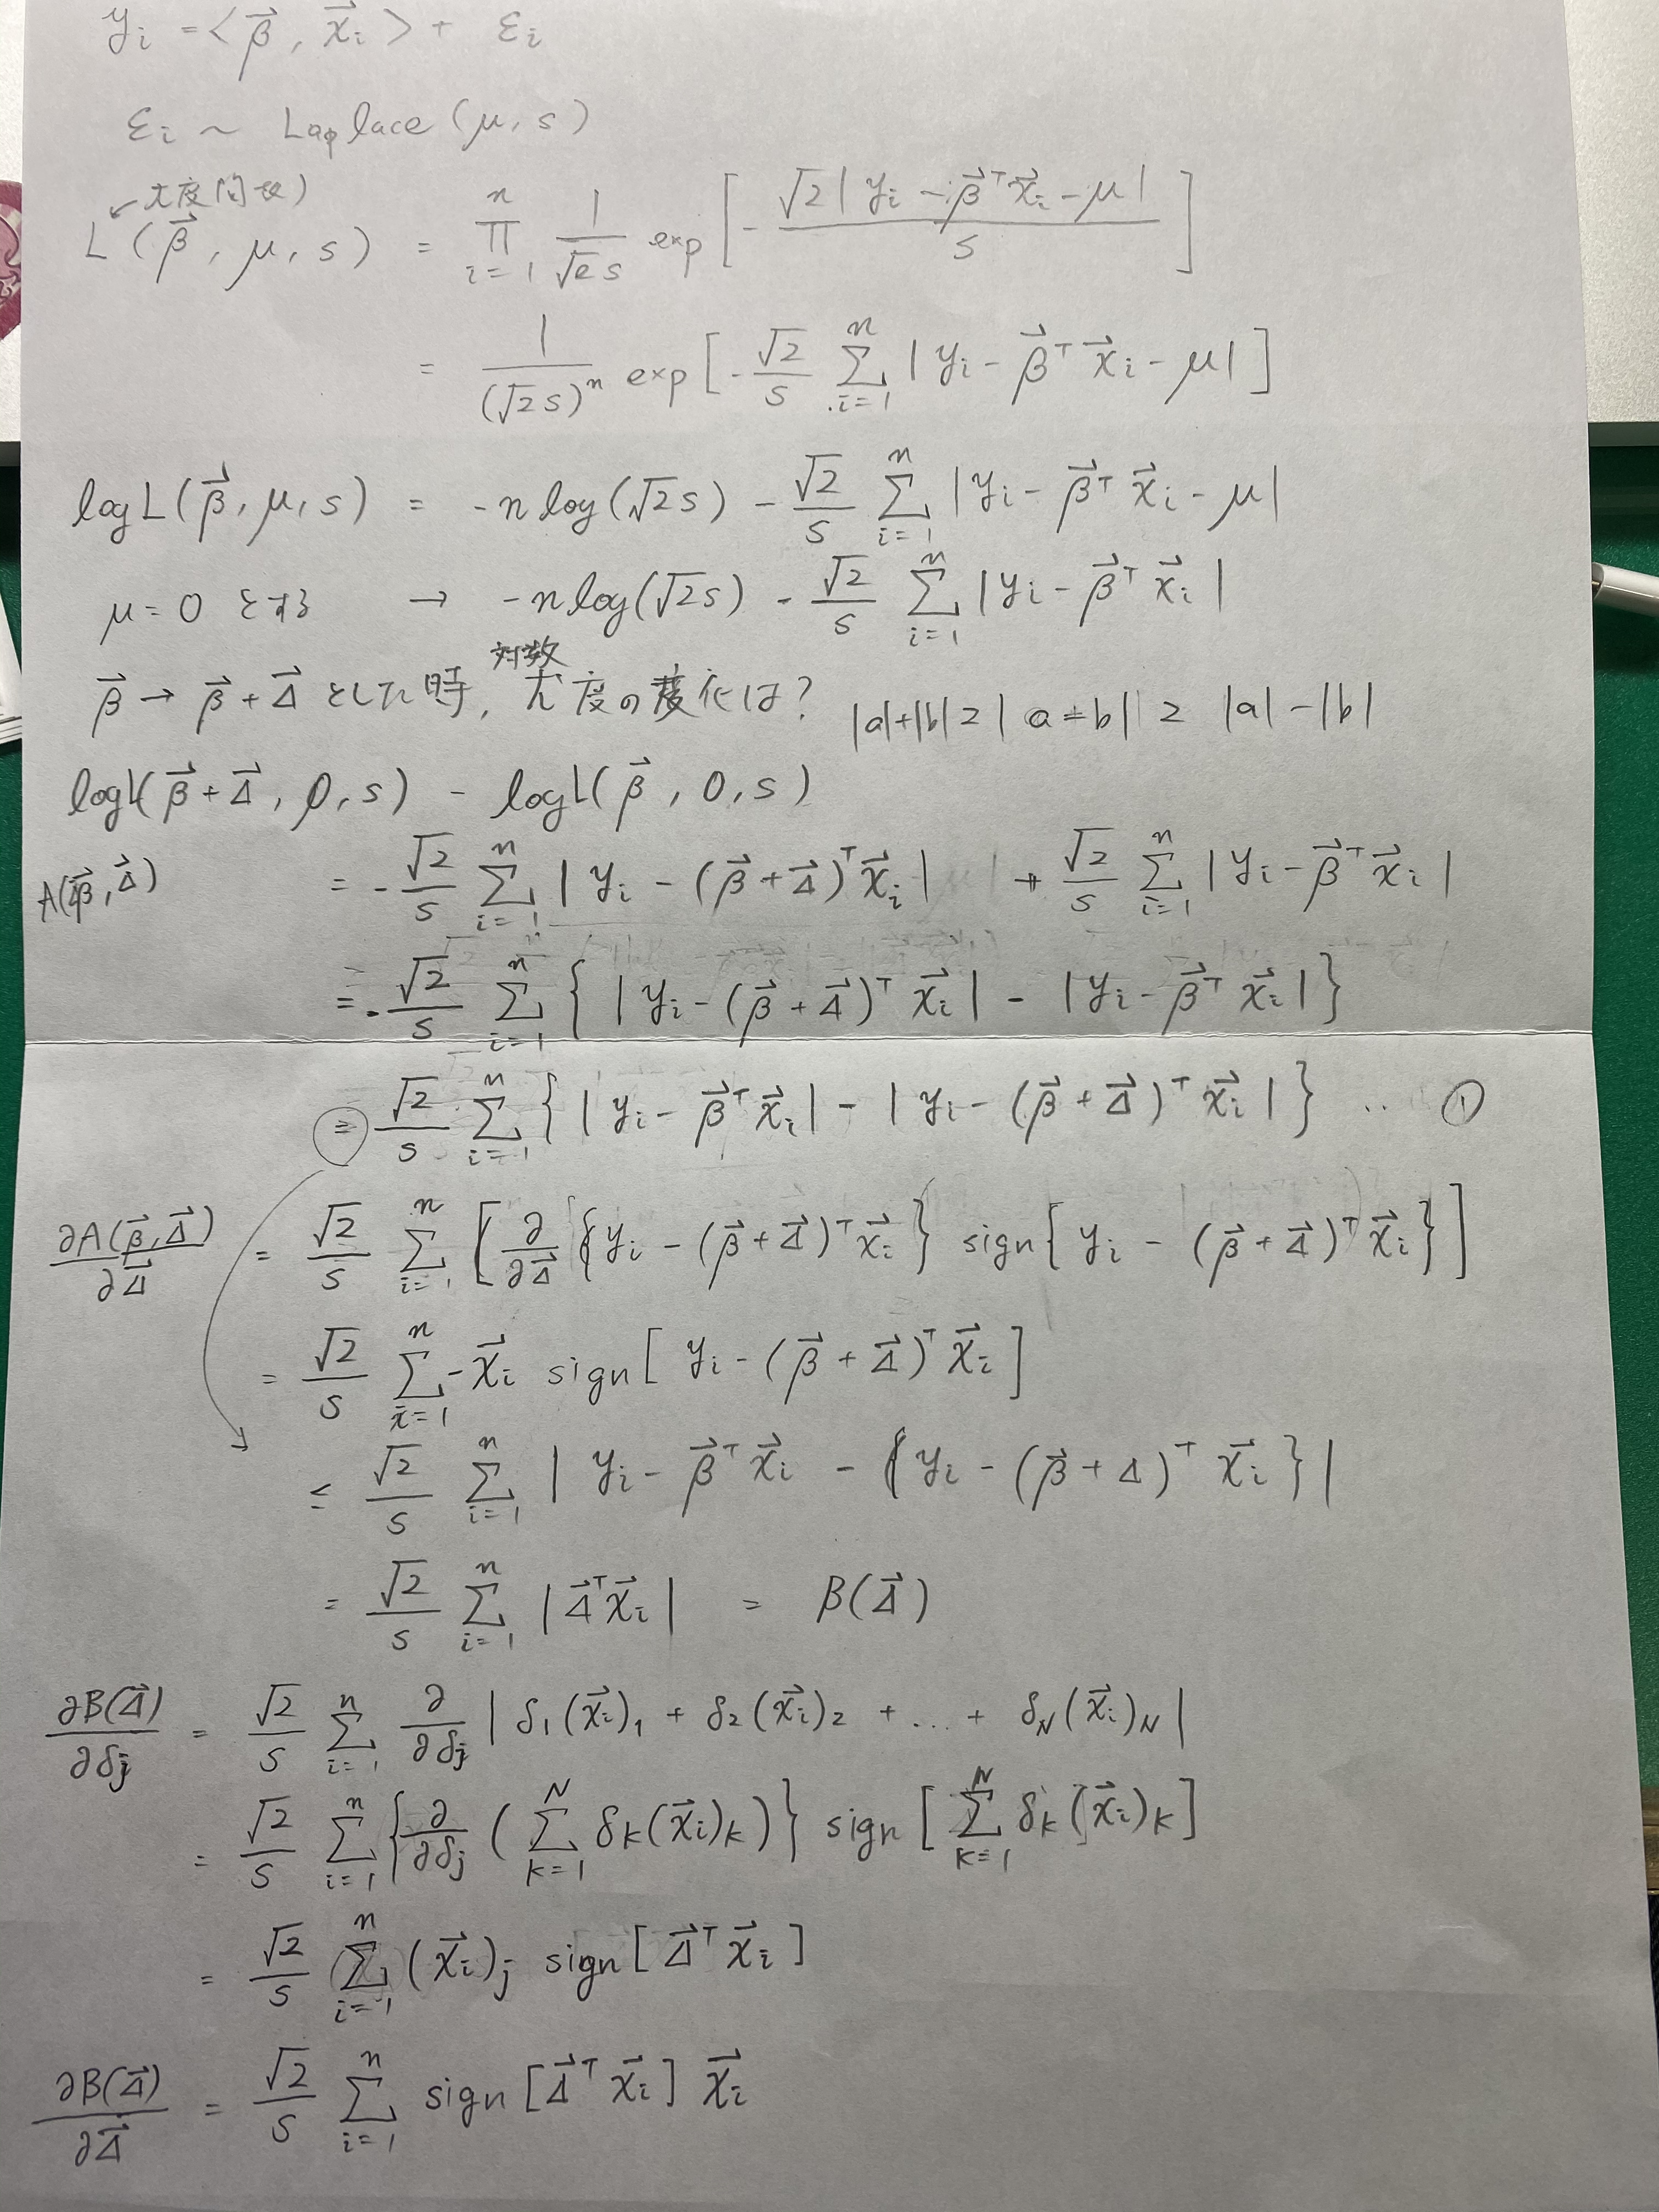 y_i = <β⃗, x⃗_i> + ε_i
ε_i ~ Laplace (μ, s)
↙ 尤度関数)
L(β⃗, μ, s) = ∏_{i=1}^{n} 1/(√2 s) exp[ - √2|y_i - β⃗^T x⃗_i - μ| / s ]
= 1/(√2 s)^n exp[ - √2/s ∑_{i=1}^{n} |y_i - β⃗^T x⃗_i - μ| ]
log L(β⃗, μ, s) = -n log(√2 s) - √2/s ∑_{i=1}^{n} |y_i - β⃗^T x⃗_i - μ|
μ = 0 とする → -n log(√2 s) - √2/s ∑_{i=1}^{n} |y_i - β⃗^T x⃗_i|
β⃗ → β⃗ + Δ⃗ とした時, 対数尤度の変化は? |a|+|b| ≥ |a+b| ≥ |a|-|b|
log L(β⃗ + Δ⃗, 0, s) - log L(β⃗, 0, s)
A(β⃗, Δ⃗) = - √2/s ∑_{i=1}^{n} |y_i - (β⃗ + Δ⃗)^T x⃗_i| + √2/s ∑_{i=1}^{n} |y_i - β⃗^T x⃗_i|
= - √2/s ∑_{i=1}^{n} { |y_i - (β⃗ + Δ⃗)^T x⃗_i| - |y_i - β⃗^T x⃗_i| }
= √2/s ∑_{i=1}^{n} { |y_i - β⃗^T x⃗_i| - |y_i - (β⃗ + Δ⃗)^T x⃗_i| } ‥ ①
∂A(β⃗, Δ⃗)/∂Δ⃗ = √2/s ∑_{i=1}^{n} [ ∂/∂Δ⃗ {y_i - (β⃗ + Δ⃗)^T x⃗_i} sign{ y_i - (β⃗ + Δ⃗)^T x⃗_i } ]
= √2/s ∑_{i=1}^{n} -x⃗_i sign[ y_i - (β⃗ + Δ⃗)^T x⃗_i ]
≤ √2/s ∑_{i=1}^{n} | y_i - β⃗^T x⃗_i - { y_i - (β⃗ + Δ)^T x⃗_i } |
= √2/s ∑_{i=1}^{n} |Δ⃗^T x⃗_i| = B(Δ⃗)
∂B(Δ⃗)/∂δ_j = √2/s ∑_{i=1}^{n} ∂/∂δ_j | δ_1(x⃗_i)_1 + δ_2(x⃗_i)_2 + ... + δ_N(x⃗_i)_N |
= √2/s ∑_{i=1}^{n} { ∂/∂δ_j ( ∑_{k=1}^{N} δ_k(x⃗_i)_k ) } sign[ ∑_{k=1}^{N} δ_k(x⃗_i)_k ]
= √2/s ∑_{i=1}^{n} (x⃗_i)_j sign[ Δ⃗^T x⃗_i ]
∂B(Δ⃗)/∂Δ⃗ = √2/s ∑_{i=1}^{n} sign[ Δ⃗^T x⃗_i ] x⃗_i